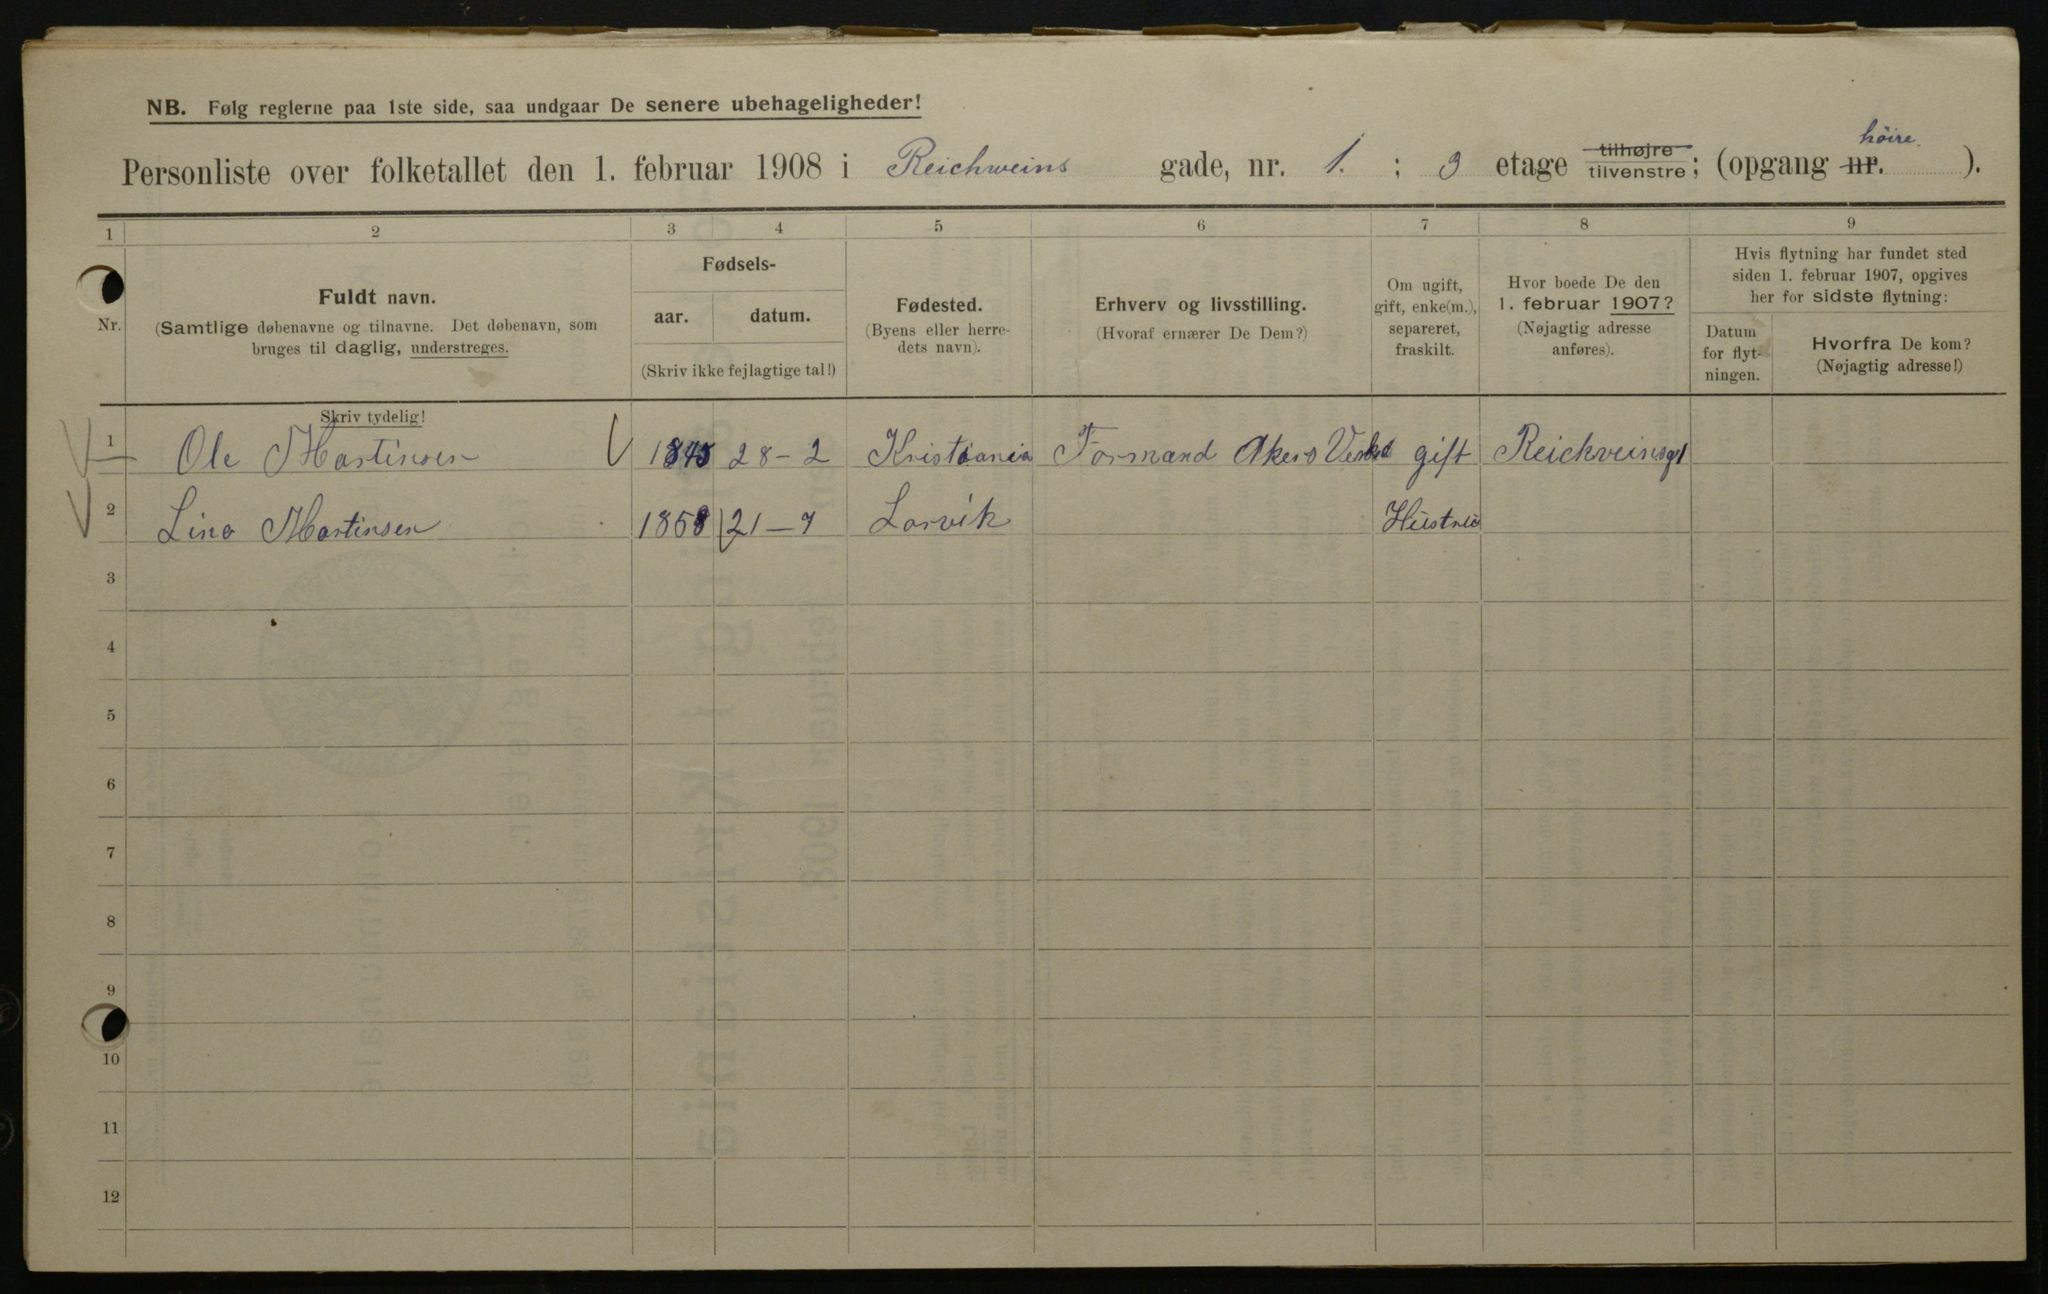 NB. Følg reglerne paa 1ste side, saa undgaar De senere ubehageligheder!
høire.
Personliste over folketallet den 1. februar 1908 i Reichweins gade, nr. 1. ; 3 etage tilhøjre tilvenstre; (opgang nr. ).
1 2 3 4 5 6 7 8 9
Nr.
Fuldt navn.
(Samtlige døbenavne og tilnavne. Det døbenavn, som
bruges til daglig, understreges.
Skriv tydelig!
Fødsels-
aar. datum.
(Skriv ikke fejlagtige tal!)
Fødested.
(Byens eller herre-
dets navn).
Erhverv og livsstilling.
(Hvoraf ernærer De Dem?)
Om ugift,
gift, enke(m.),
separeret,
fraskilt.
Hvor boede De den
1. februar 1907?
(Nøjagtig adresse
anføres).
Hvis flytning har fundet sted
siden 1. februar 1907, opgives
her for sidste flytning:
Datum
for flyt-
ningen.
Hvorfra De kom?
(Nøjagtig adresse!)
1 Ole Martinsen 1845 28-2 Kristiania Formand Akers gift Reichveinsg 1
2 Lina Martinsen 1858 21-7 Larvik Hustru
3
4
5
6
7
8
9
10
11
12